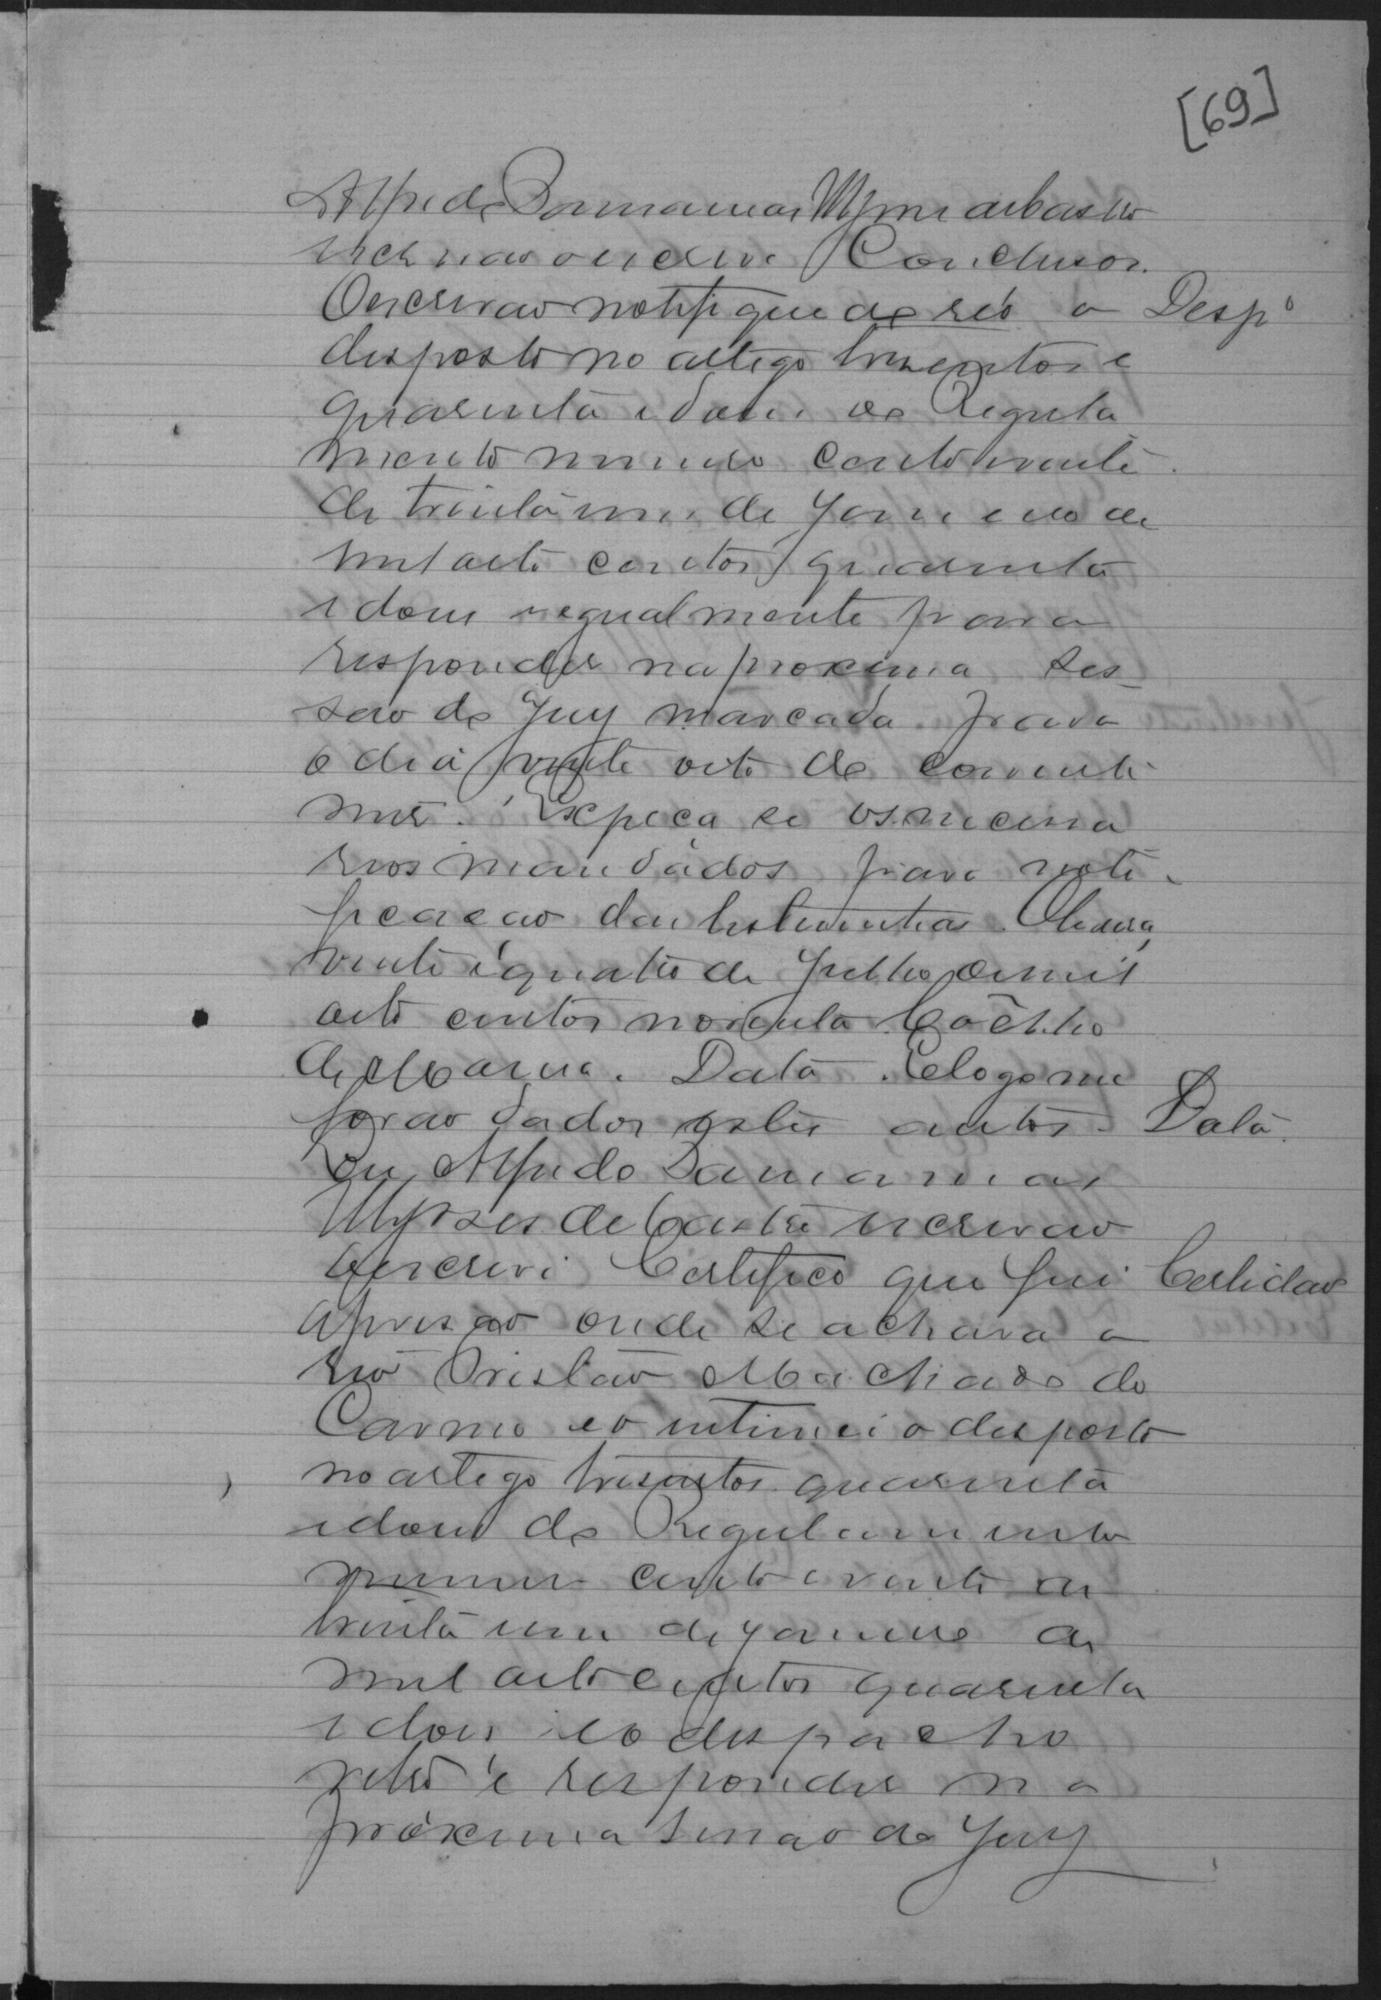 [69]
Alfredo Damarnas Ulysses de Castro
escrivão escrevi. Conclusos.
O escrivão notifique ao réo o Despº
disposto no artigo tresentos e
quarenta e dois do Regula
mento numero cento e vinte
de trinta um de Janeiro de
mil oito centos quarenta
e dous e egualmente para
responder na proxima ses-
são do Jury marcada para
o dia vinte oito do corrente
mês. Expeça se os necessa
rios mandados para noti-
ficação das testemunhas.
vinte e quatro de Julho de mil
oito centos noventa Coêlho
de Data. E logo me
forão dados estes autos. Data.
Eu Alfredo Damarnas
Ulysses de Castro escrivão
o escrevi. Certifico que fui Certidão
a prisão onde se achava o
réo Tristão Machado do
Carmo e o intimei o disposto
no artigo tresentos quarenta
e dous do Regulamento
numero cento e vinte de
trinta um de Janeiro de
mil oito centos quarenta
e dous e o despacho
retro e responder na
próxima sessão do Jury